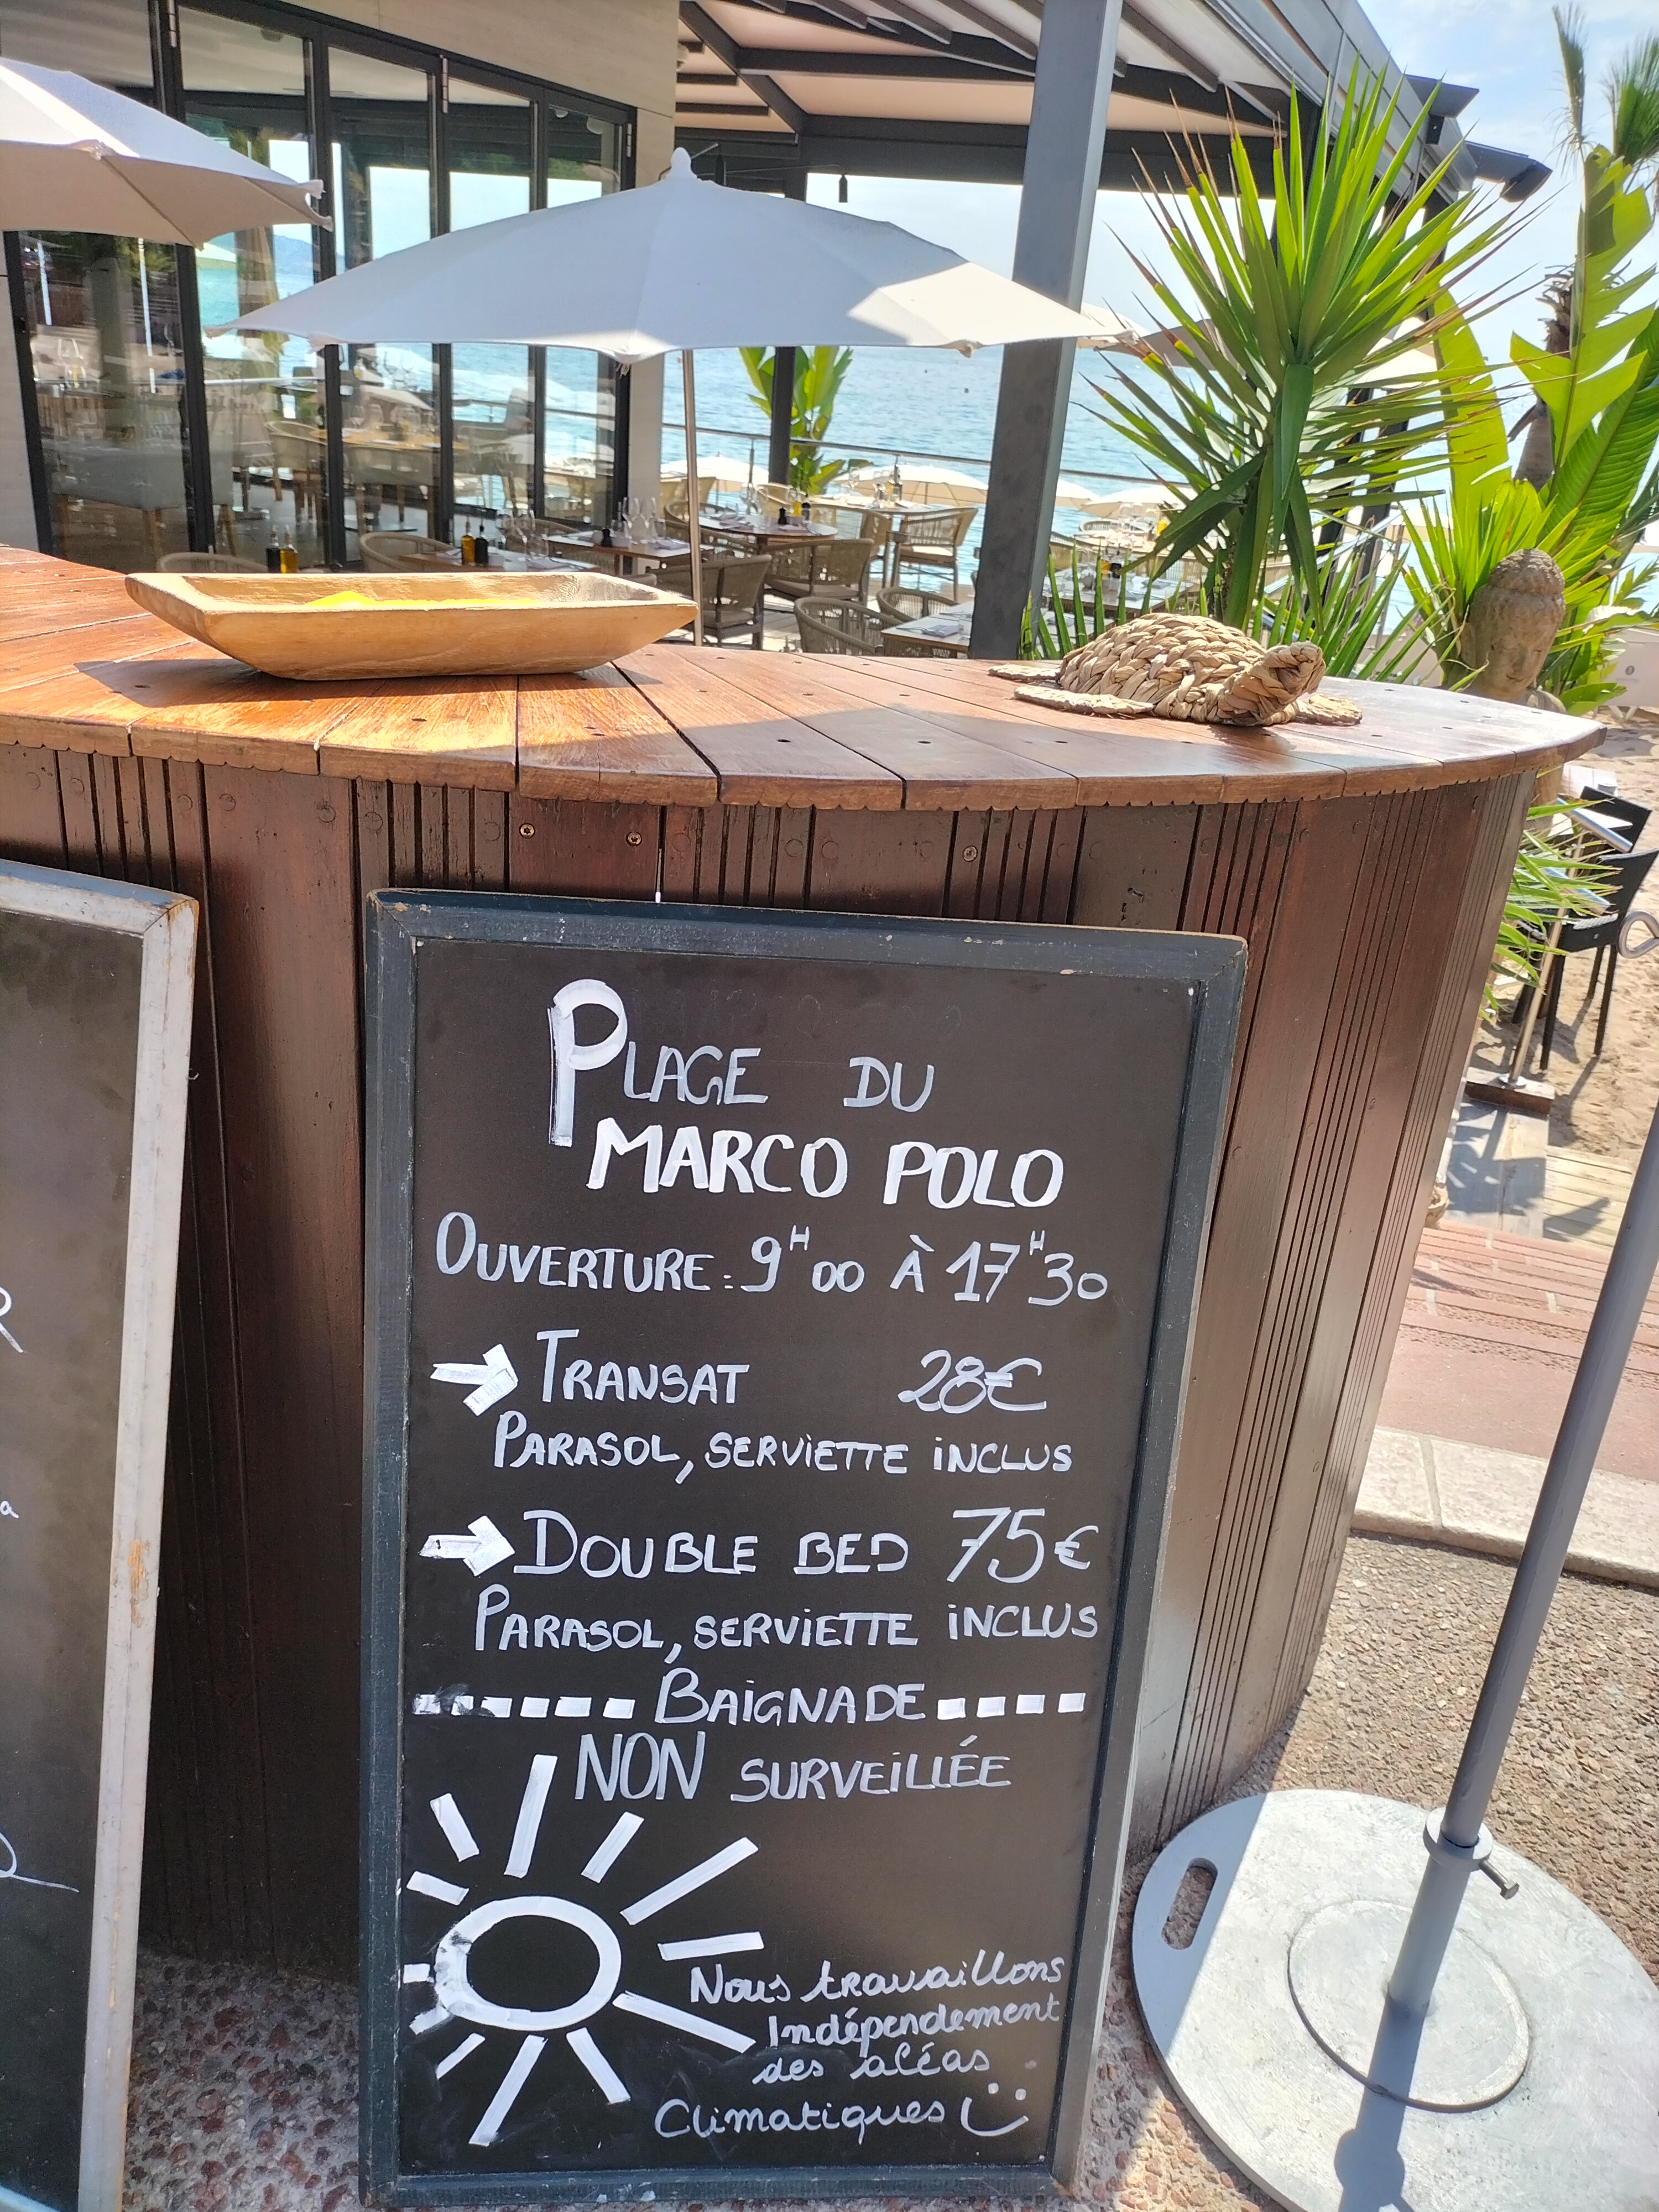 PLAGE DU
MARCO POLO
OUVERTURE : 9H00 À 17H30
TRANSAT 28€
PARASOL, SERVIETTE INCLUS
DOUBLE BED 75€
PARASOL, SERVIETTE INCLUS
BAIGNADE
NON SURVEILLÉE
Nous travaillons
Indépendement
des aléas
Climatiques